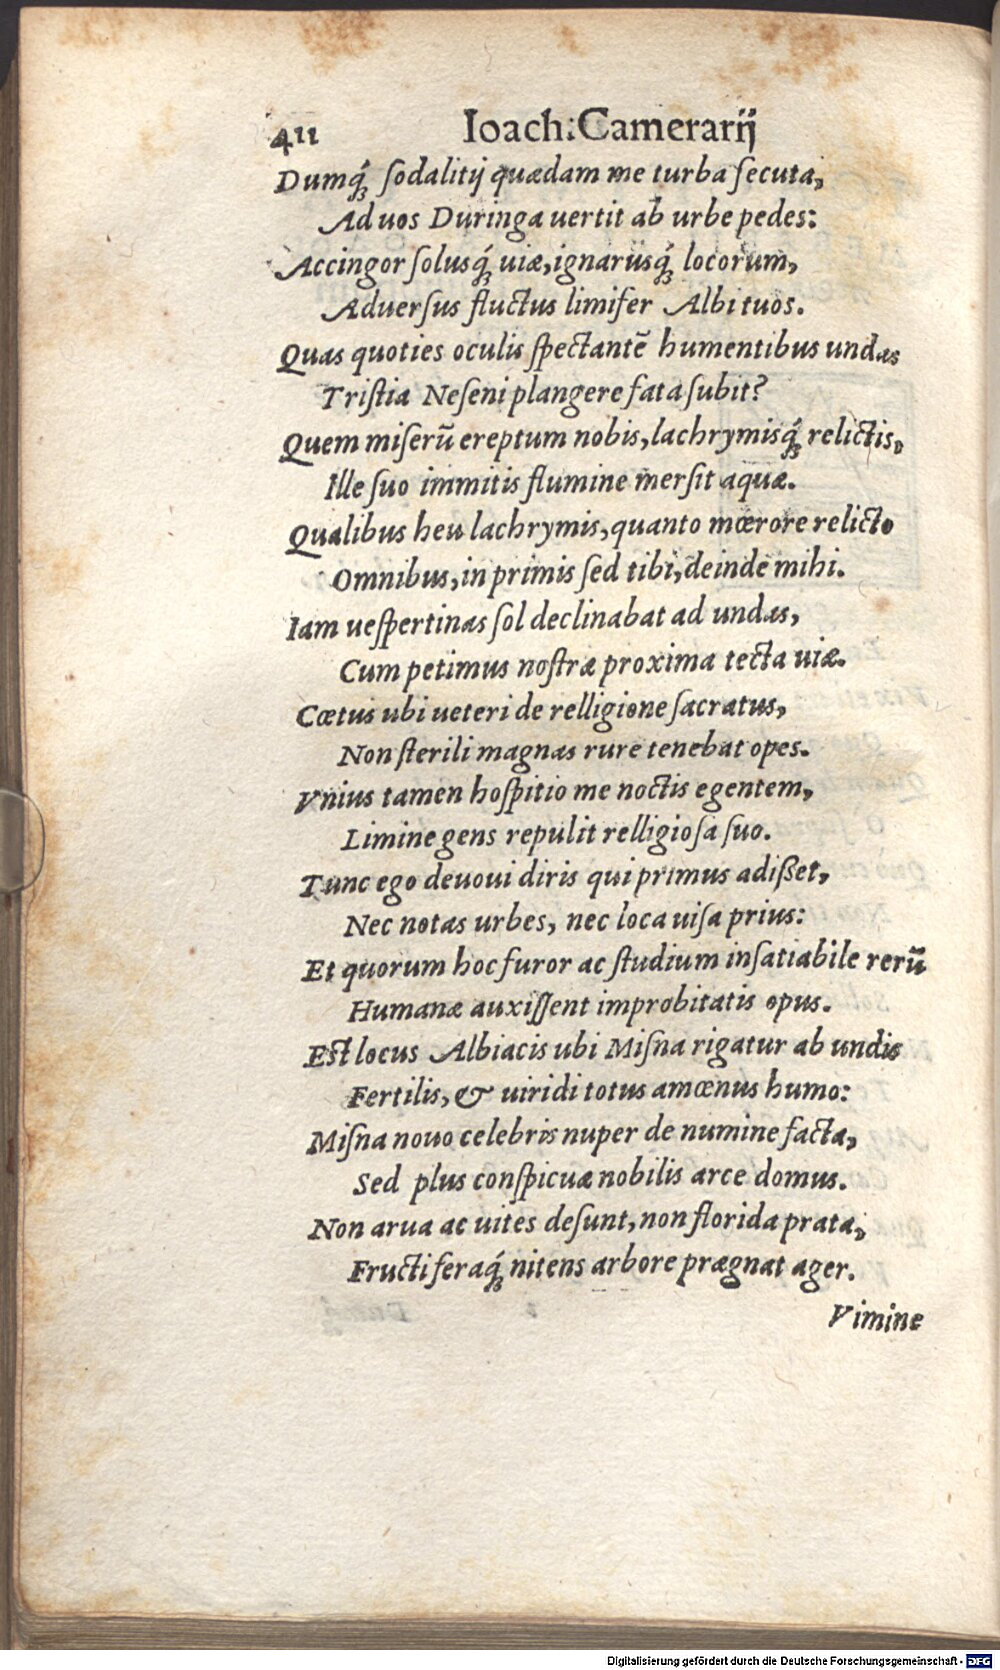 411 Ioach: Camerarij
Dumq́; ſodalitij quædam me turba ſecuta,
Ad uos Duringa uertit ab urbe pedes:
Accingor ſolusq́; uiæ, ignarusq́; locorum,
Aduerſus fluctus limifer Albi tuos.
Quas quoties oculis ſpectantē humentibus undas
Triſtia Neſeni plangere fata ſubit?
Quem miſerū ereptum nobis, lachrymisq́; relictis,
Ille ſuo immitis flumine merſit aquæ.
Qualibus heu lachrymis, quanto mœrore relicto
Omnibus, in primis ſed tibi, deinde mihi.
Iam ueſpertinas ſol declinabat ad undas,
Cum petimus noſtræ proxima tecta uiæ.
Cœtus ubi ueteri de relligione ſacratus,
Non ſterili magnas rure tenebat opes.
Vnius tamen hoſpitio me noctis egentem,
Limine gens repulit relligioſa ſuo.
Tunc ego deuoui diris qui primus adißet,
Nec notas urbes, nec loca uiſa prius:
Et quorum hoc furor ac ſtudium inſatiabile rerū
Humanæ auxiſſent improbitatis opus.
Eſt locus Albiacis ubi Miſna rigatur ab undis
Fertilis, & uiridi totus amœnus humo:
Miſna nouo celebris nuper de numine facta,
Sed plus conſpicuæ nobilis arce domus.
Non arua ac uites deſunt, non florida prata,
Fructiferaq́; nitens arbore prægnat ager.
Vimine
Digitalisierung gefördert durch die Deutsche Forschungsgemeinschaft - DFG